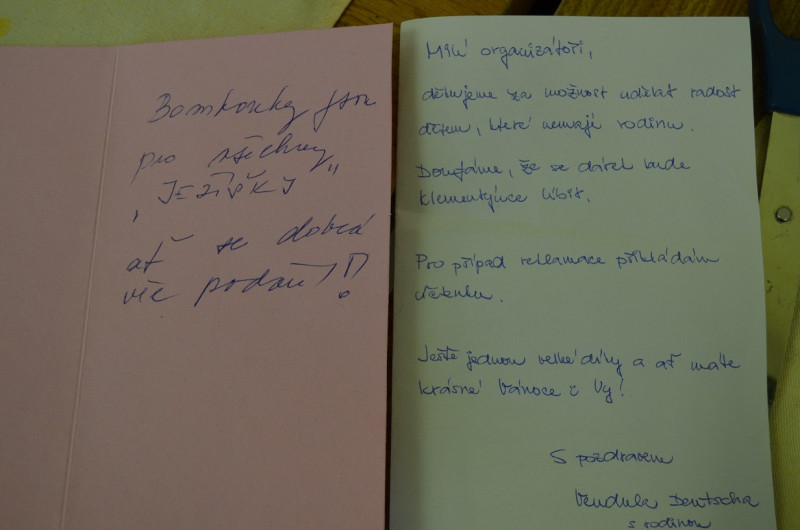 Bombonky jsou
pro všechny
"JEŽÍŠKY"
ať se dobrá
věc podaří!
Milí organizátoři,
děkujeme za možnost udělat radost
dětem, které nemají rodinu.
Doufáme, že se dárek bude
Klementýnce líbit.
Pro případ reklamace přikládám
účtenku.
Ještě jednou velké díky a ať máte
krásné Vánoce i Vy!
S pozdravem
Vendula Deutscha
s rodinou